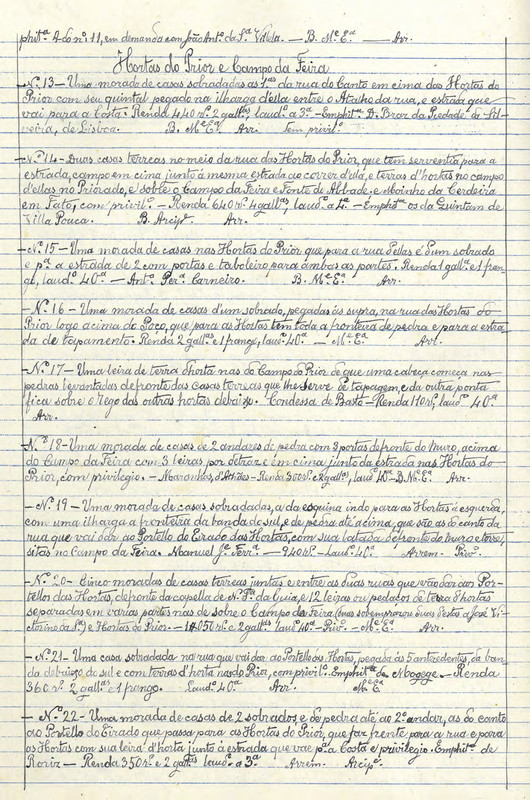 phit.ª 4 do n.º 11, em demanda com João Ant.º da S.ª Villela. — B. M.e E.ª — Arr.
Hortas do Prior e Campo da Feira
— N.º 13 — Uma morada de casas sobradadas as 1.as da rua do Canto em cima das Hortas do
Prior com seu quintal pegado na ilharga d'ella entre o Atalho da rua, e estrada que
vai para a Costa. Renda 440 r.s 2 gall.as, laud.º a 3.ª — Emphit.ª D. Braz da Piedade da Sil-
veira, de Lisboa. B. M.e E.ª Arr. Sem privil.º
— N.º 14 — Duas casas terreas no meio da rua das Hortas do Prior, que tem serventia para a
estrada, campo em cima junto à mesma estrada ao correr d'ella, e terras d'hortas no campo
d'ellas no Priorado, e sobre o Campo da Feira e Fonte do Abbade, e Moinho da Cerdeira
em Fato, com privil.º — Renda 640 r.s 4 gall.as, laud.º a 4.ª — Emphit.ª os da Quintam de
Villa Pouca. B. Arcip.e Arr.
— N.º 15 — Uma morada de casas nas Hortas do Prior que para a rua d'ellas é d'um sobrado
e p.ª a estrada de 2 com portas e taboleiro para ambas as partes. Renda 1 gall.ª e 1 fran-
go, laud.º 40.ª — Ant.º Per.ª Carneiro. B. M.e E.ª Arr.
— N.º 16 — Uma morada de casas d'um sobrado, pegadas às supra, na rua das Hortas do
Prior logo acima do Poço, que para as Hortas tem toda a fronteira de pedra e para a estra-
da de tapamento. Renda 2 gall.as e 1 frango, laud.º 40.ª — M.e E.ª Arr.
— N.º 17 — Uma leira de terra d'horta nas do Campo do Prior de que uma cabeça começa nas
pedras levantadas defronte das casas terreas que lhe serve de tapagem, e da outra ponta
fica sobre o rego das outras hortas debaixo. Condessa de Basto — Renda 110 r.s, laud.º 40.ª
Arr.
— N.º 18 — Uma morada de casas de 2 andares de pedra com 3 portas defronte do muro, acima
do Campo da Feira com 3 leiras por detraz e em cima junto da estrada nas Hortas do
Prior, com privilegio. — Noronhas, d'Arões — Renda 300 r.s e 2 gall.as, laud.º 40.ª — B. M.e E.ª Arr.
— N.º 19 — Uma morada de casas sobradadas, a da esquina indo para as Hortas à esquerda,
com uma ilharga a fronteira da banda do sul, e de pedra até acima, que são as do canto da
rua que vai dar ao Portello do Eirado das Hortas, com sua latada defronte do muro e torre,
sitas no Campo da Feira. Manuel J.e Ferr.ª — 240 r.s — Laud.º 40.ª Arrem. Priv.º
— N.º 20 — Cinco moradas de casas terreas juntas e entre as duas ruas que vão dar aos Por-
tellos das Hortas, defronte da capella de N. S.ª da Guia, e 12 leiras ou pedaços de terra d'hortas
separadas em varias partes nas de sobre o Campo da Feira (duas subemprazou duas d'estas a José Vi-
ctorino da S.ª) e Hortas do Prior. — 1$050 r.s e 2 gall.as, laud.º 40.ª — Priv.º — M.e E.ª Arr.
— N.º 21 — Uma casa sobradada na rua que vai dar ao Portello das Hortas, pegada às 5 antecedentes, da ban-
da debaixo do sul e com terras d'horta nas do Prior, com privil. Emphit.ª de Nogege — Renda
360 r.s 2 gall.as e 1 frango. Laud.º 40.ª Arr. M.e E.ª
— N.º 22 — Uma morada de casas de 2 sobrados, e de pedra até ao 2.º andar, as do canto
ao Portello do Eirado que passa para as Hortas do Prior, que faz frente para a rua e para
as Hortas com sua leira d'horta junto à estrada que vae p.ª a Costa e privilegio. Emphit.ª de
Roriz — Renda 350 r.s e 2 gall.as laud.º a 3.ª Arrem. Arcip.e